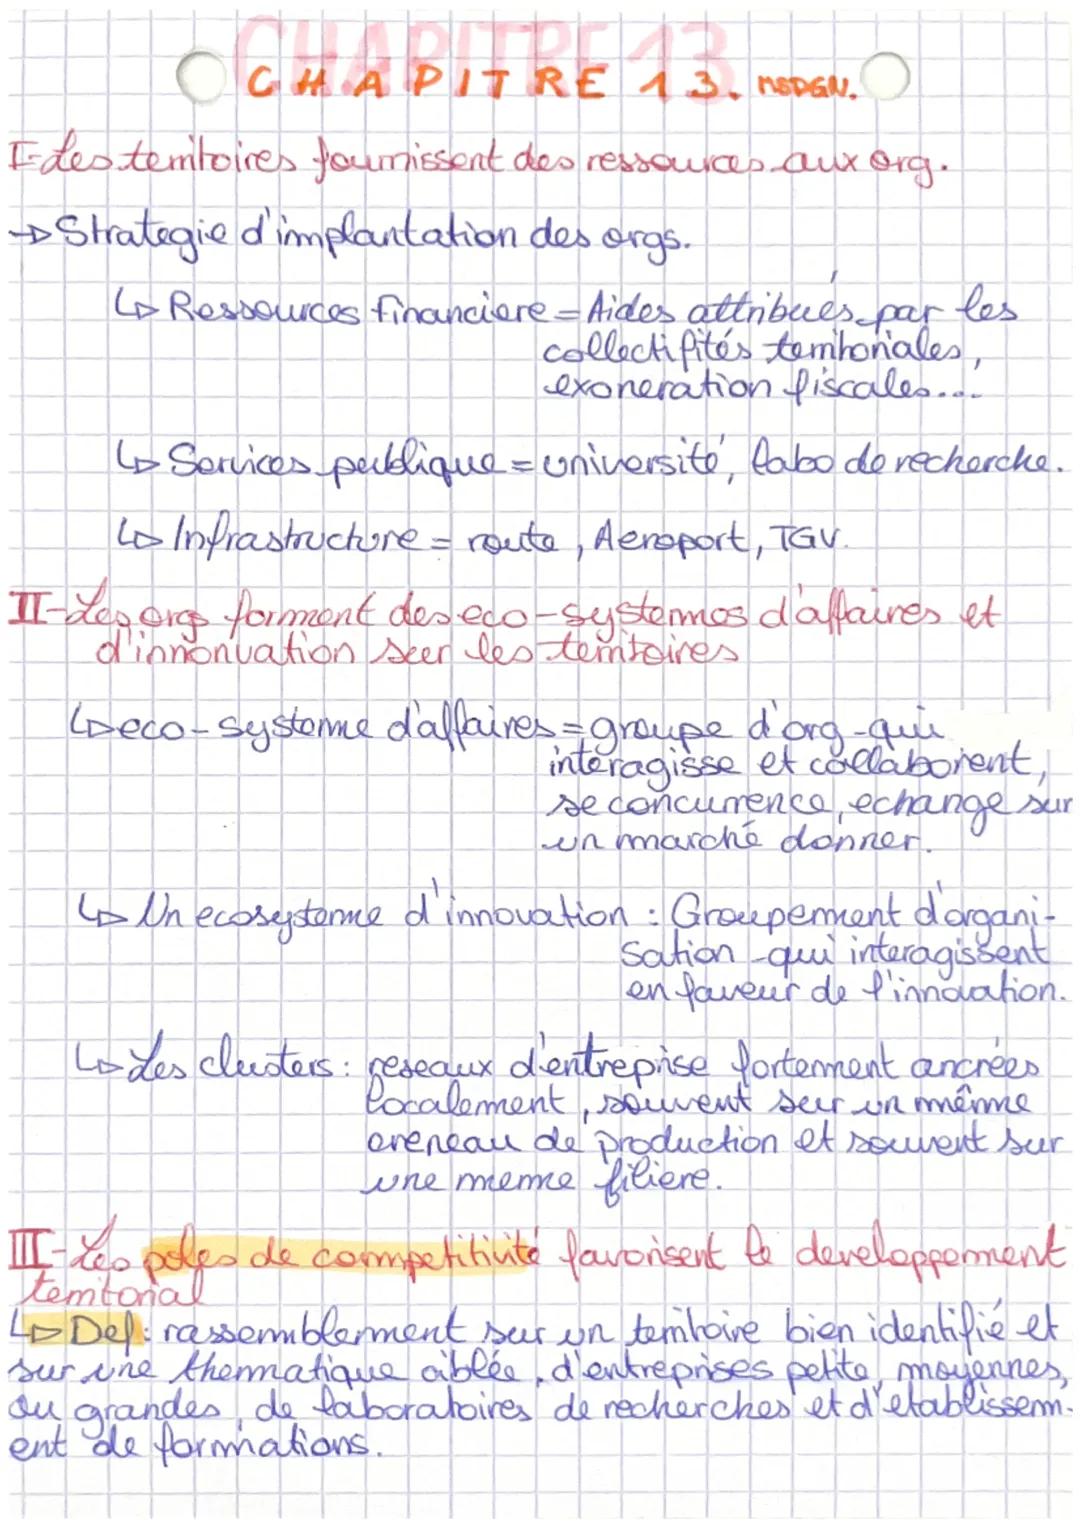 CHAPITRE 13
CHAPITRE 13. MSDGN.
I-Les territoires fournissent des ressources aux org.
→ Strategie d'implantation des orgs.
↳ Ressources financiere = Aides attribués par les
collectifités territoriales,
exoneration fiscales...
↳ Services publique = université, labo de recherche.
↳ Infrastructure = route, Aeroport, TGV.
II-Les orgs forment des eco-systemes d'affaires et
d'innonvation sur les territoires
↳ eco-systeme d'affaires = groupe d'org qui
interagisse et collaborent,
se concurrence, echange sur
un marché donner.
↳ Un ecosysteme d'innovation : Groupement d'organi-
sation qui interagissent
en faveur de l'innovation.
↳ Les clusters : reseaux d'entreprise fortement ancrées
localement, souvent sur un même
creneau de production et souvent sur
une meme filiere.
III-Les poles de competitivité favorisent le developpement
territorial
↳ Def : rassemblement sur un territoire bien identifié et
sur une thematique ciblée, d'entreprises petite, moyennes,
ou grandes, de laboratoires de recherches et d'etablissem-
ent de formations.